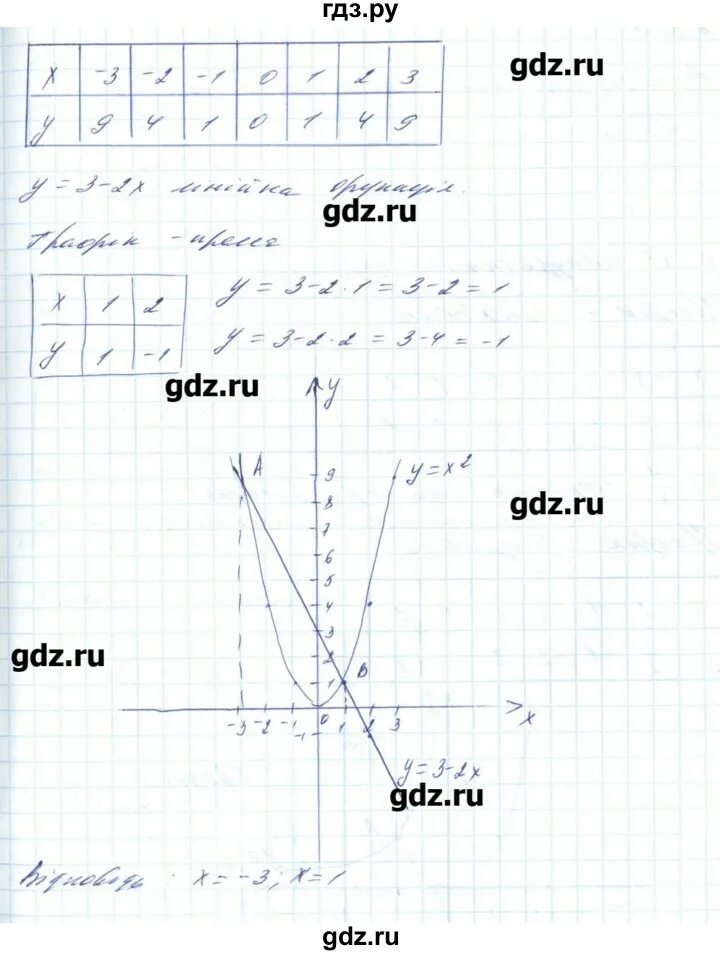 гдз.ру
gdz.ru
x -3 -2 -1 0 1 2 3
y 9 4 1 0 1 4 9
y = 3-2x лінійна функція.
gdz.ru
Графік - пряма
x 1 2
y 1 -1
y = 3-2·1 = 3-2 = 1
y = 3-2·2 = 3-4 = -1
gdz.ru
y
A
y = x²
9
8
7
6
5
4
3
2
1
gdz.ru
gdz.ru
B
-3 -2 -1 0 1 2 3 x
-1
y = 3-2x
gdz.ru
Відповідь: x = -3; x = 1
gdz.ru